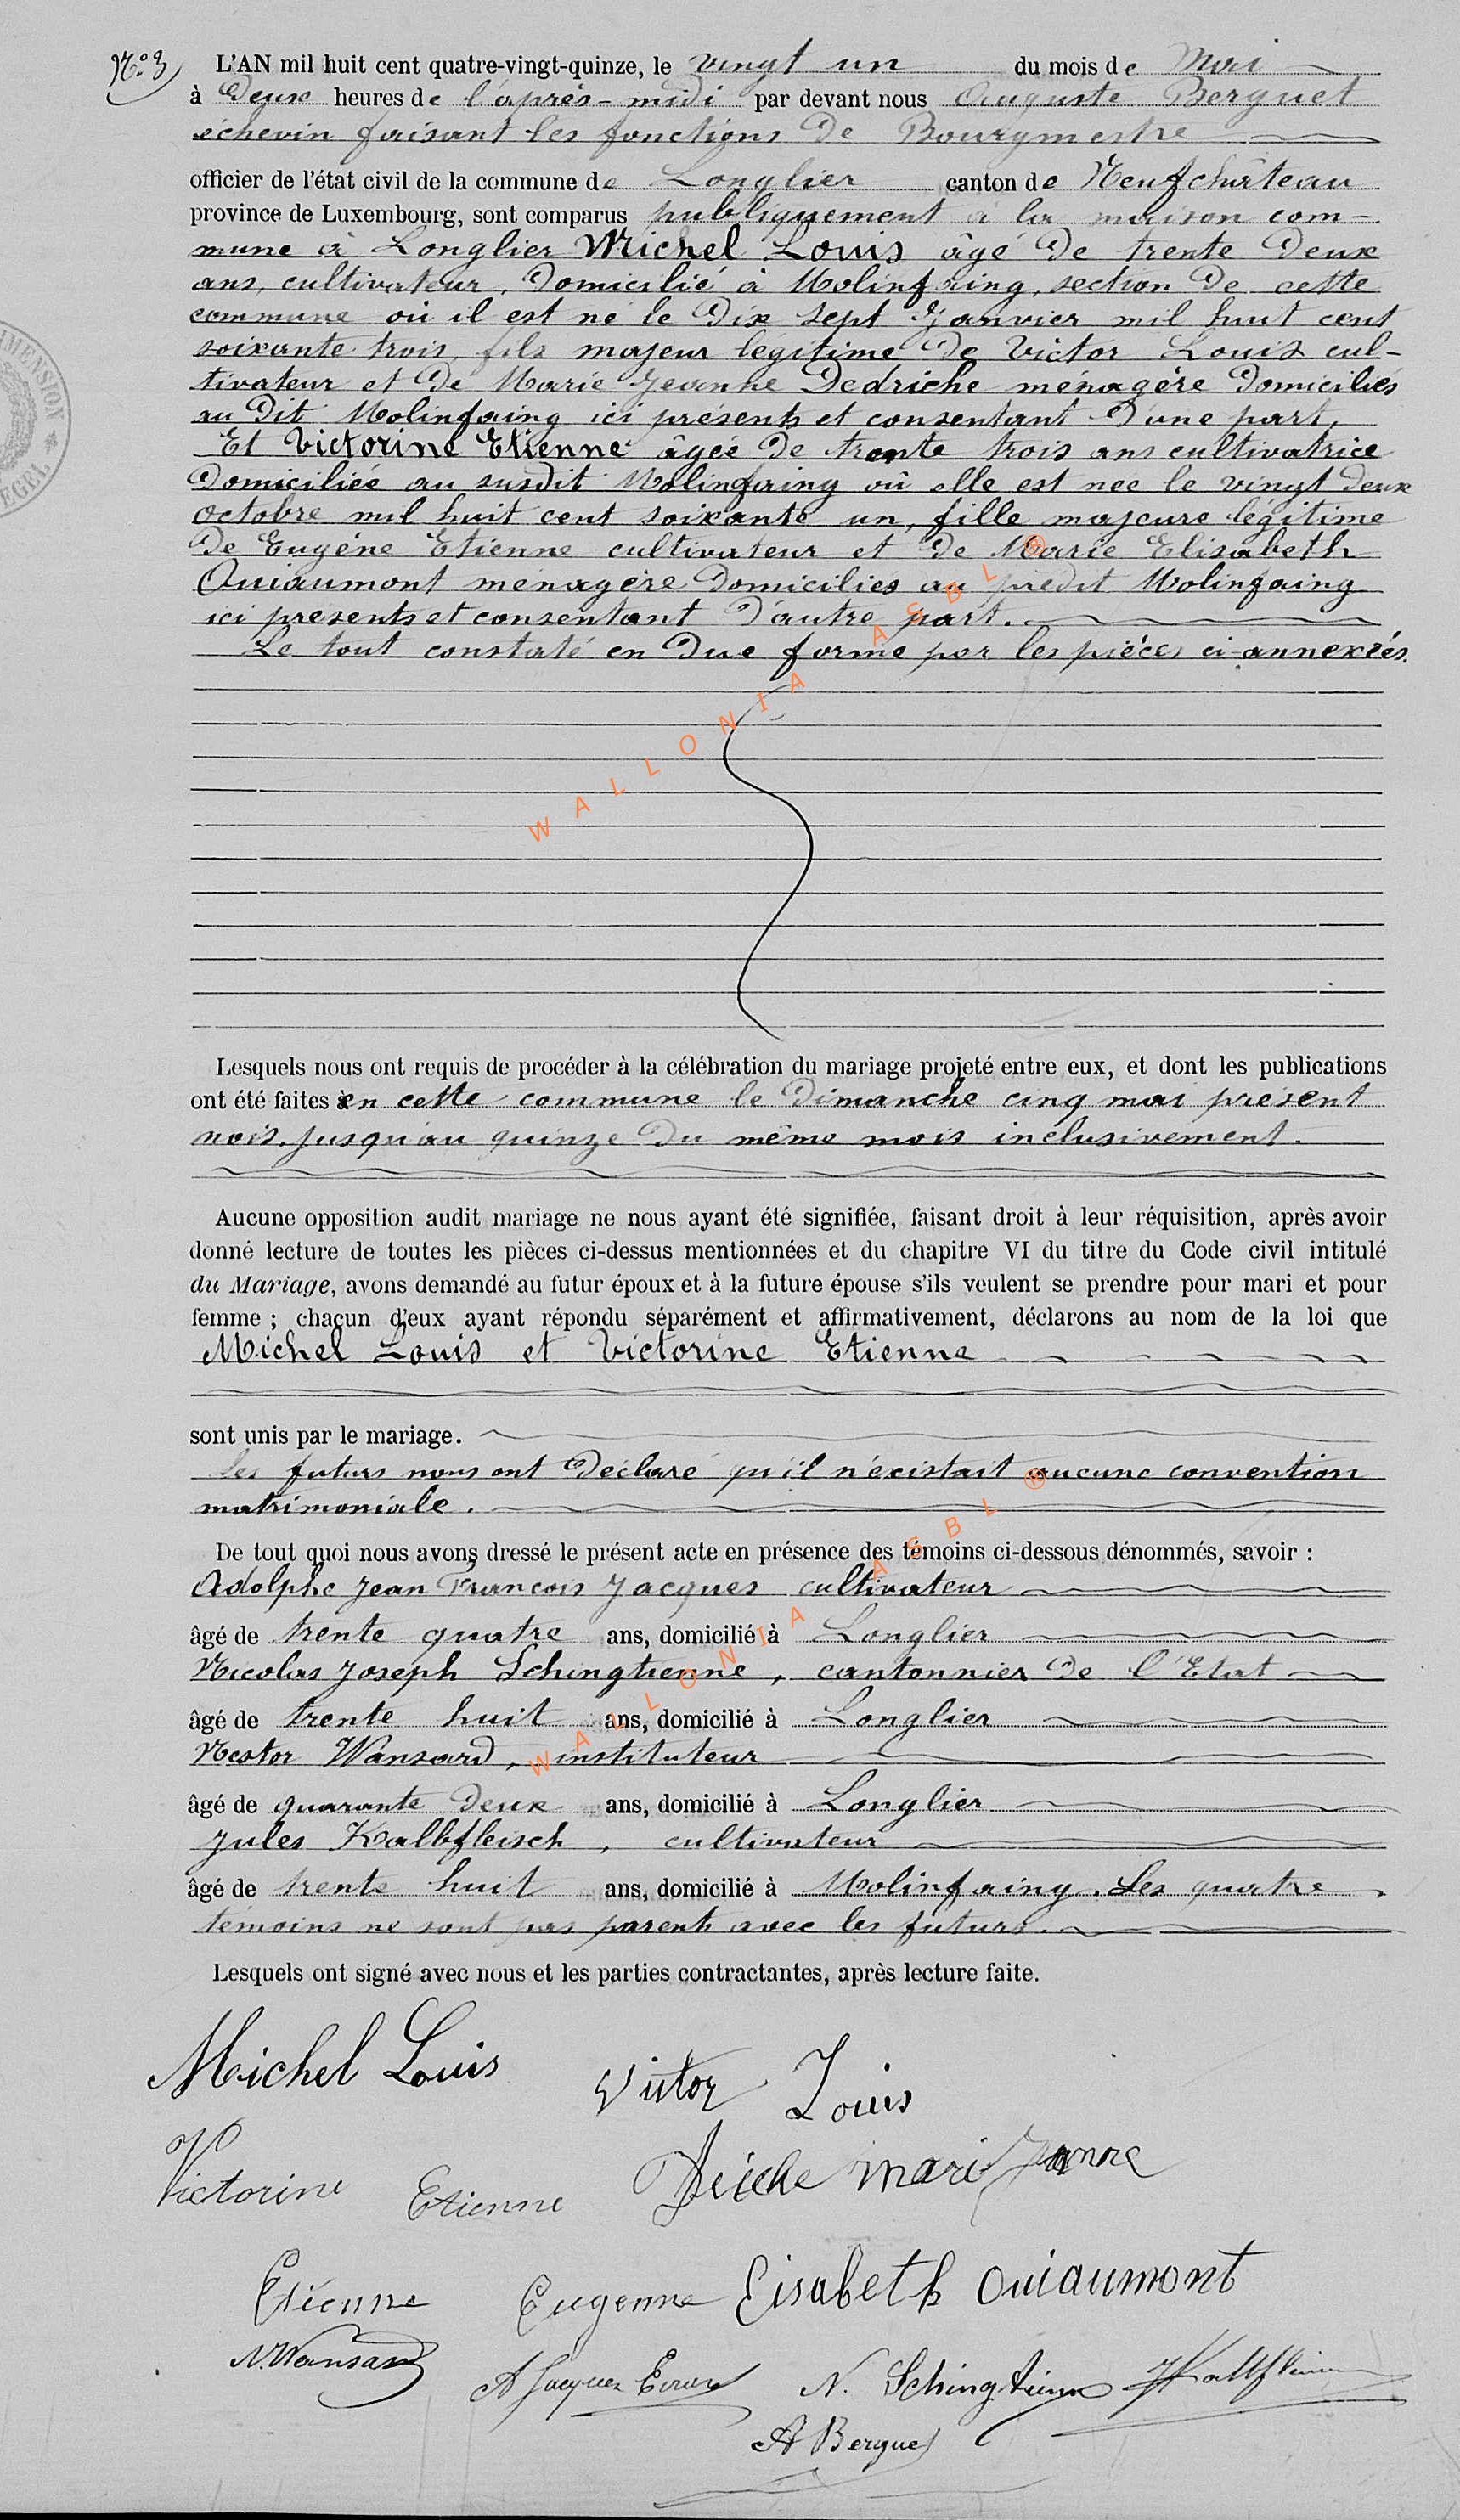 N° 3 L'AN mil huit cent quatre-vingt-quinze, le vingt un du mois de Mai
à Deux heures de l'après-midi par devant nous Auguste Berguet
échevin faisant les fonctions de Bourgmestre
officier de l'état civil de la commune de Longlier canton de Neufchâteau
province de Luxembourg, sont comparus publiquement à la maison com-
mune à Longlier Michel Louis âgé de trente deux
ans, cultivateur, domicilié à Molinfaing, section de cette
commune où il est né le dix sept Janvier mil huit cent
soixante trois, fils majeur legitime de Victor Louis cul-
tivateur et de Marie Jeanne Dedriche ménagère domiciliés
au dit Molinfaing ici présents et consentant d'une part,
Et Victorine Etienne âgée de trente trois ans cultivatrice
domiciliée au susdit Molinfaing où elle est née le vingt deux
octobre mil huit cent soixante un, fille majeure légitime
de Eugène Etienne cultivateur et de Marie Elisabeth
Ouiaumont ménagère domiciliés au prédit Molinfaing
ici présents et consentant d'autre part.
Le tout constaté en due forme par les pièces ci-annexées.
WALLONIA ASBL ®
Lesquels nous ont requis de procéder à la célébration du mariage projeté entre eux, et dont les publications
ont été faites en cette commune le dimanche cinq mai présent
mois, jusqu'au quinze du même mois inclusivement.
Aucune opposition audit mariage ne nous ayant été signifiée, faisant droit à leur réquisition, après avoir
donné lecture de toutes les pièces ci-dessus mentionnées et du chapitre VI du titre du Code civil intitulé
du Mariage, avons demandé au futur époux et à la future épouse s'ils veulent se prendre pour mari et pour
femme ; chacun d'eux ayant répondu séparément et affirmativement, déclarons au nom de la loi que
Michel Louis et Victorine Etienne
sont unis par le mariage.
les futurs nous ont déclaré qu'il n'existait aucune convention
matrimoniale.
De tout quoi nous avons dressé le présent acte en présence des témoins ci-dessous dénommés, savoir :
Adolphe Jean François Jacques cultivateur
âgé de trente quatre ans, domicilié à Longlier
Nicolas Joseph Schingtienne, cantonnier de l'Etat
âgé de trente huit ans, domicilié à Longlier
Nestor Wansard, instituteur
âgé de quarante deux ans, domicilié à Longlier
Jules Kalbfleisch, cultivateur
âgé de trente huit ans, domicilié à Molinfaing. Les quatre
témoins ne sont pas parents avec les futurs.
WALLONIA ASBL ®
Lesquels ont signé avec nous et les parties contractantes, après lecture faite.
Michel Louis Victor Louis
Victorine Etienne mari Janne
Etienne Eugenne Eisabeth Ouiaumont
N. Wansard A Jacques N. Schingtienne
A Berguet